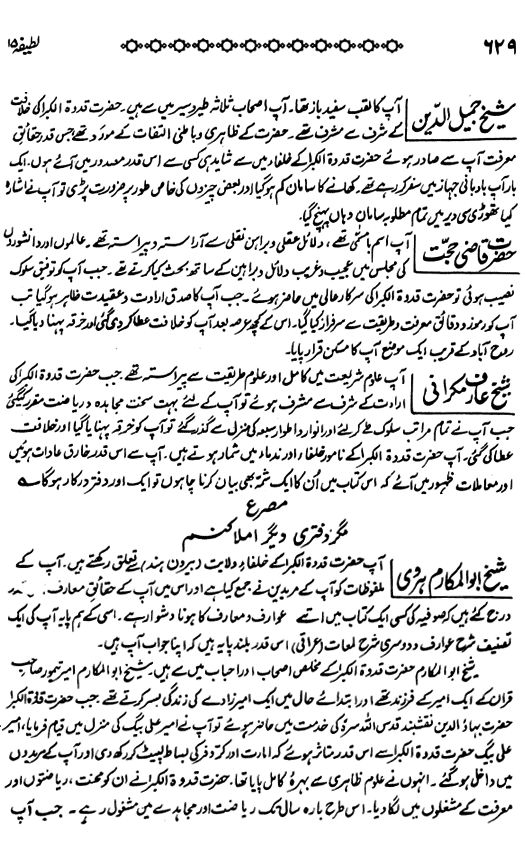 ۶۲۹
لطیفہ ۱۵
شیخ جمیل الدین
آپ کا لقب سفید باز تھا۔ آپ اصحاب ثلاثہ طیر و سیر میں سے ہیں۔ حضرت قدوۃ الکبرا کی خلافت
کے شرف سے مشرف تھے۔ حضرت کے ظاہری و باطنی التفات کے مورد تھے جس قدر حقائق
معرفت آپ سے صادر ہوئے حضرت قدوۃ الکبرا کے خلفاء میں سے شاید ہی کسی سے اس قدر مصدور میں آئے ہوں۔ ایک
بار آپ بادبانی جہاز میں سفر کر رہے تھے۔ کھانے کا سامان کم ہو گیا اور بعض چیزوں کی خاص طور پر ضرورت پڑی تو آپ نے اشارہ
کیا تھوڑی سی دیر میں تمام مطلوبہ سامان وہاں پہنچ گیا۔
حضرت قاضی حجت
آپ اسم بامسمّٰی تھے، دلائل عقلی و براہن نقلی سے آراستہ و پیراستہ تھے۔ عالموں اور دانشوروں
کی مجلس میں عجیب و غریب دلائل و براہین کے ساتھ بحث کیا کرتے تھے۔ جب آپ کو توفیق سلوک
نصیب ہوئی تو حضرت قدوۃ الکبرا کی سرکار عالی میں حاضر ہوئے۔ جب آپ کا صدق ارادت و عقیدت ظاہر ہو گیا تب
آپ کو رموز و دقائق معرفت و طریقت سے سرفراز کیا گیا۔ اس کے کچھ عرصہ بعد آپ کو خلافت عطا کر دی گئی اور خرقہ پہنا دیا گیا۔
روح آباد کے قریب ایک موضع آپ کا مسکن قرار پایا۔
شیخ عارف مکرانی
آپ علوم شریعت میں کامل اور علوم طریقت سے پیراستہ تھے۔ جب حضرت قدوۃ الکبرا کی
ارادت کے شرف سے مشرف ہوئے تو آپ کے لئے بہت سخت مجاہدہ و ریاضت مقرر کی گئی
جب آپ نے تمام مراتب سلوک طے کر لئے اور انوار و اطوار سبعہ کی منزل سے گذر گئے تو آپ کو خرقہ پہنایا گیا اور خلافت
عطا کی گئی۔ آپ حضرت قدوۃ الکبرا کے نامور خلفاء اور ندماء میں شمار ہوتے ہیں۔ آپ سے اس قدر خارق عادات ہوئیں
اور معاملات ظہور میں آئے کہ اس کتاب میں اُن کا ایک شمہ بھی بیان کرنا چاہوں تو ایک اور دفتر درکار ہوگا ے
مصرع
مگر دفتری دیگر املا کنم
شیخ ابوالمکارم ہروی
آپ حضرت قدوۃ الکبرا کے خلفاء ولایت (بیرون ہند) سے تعلق رکھتے ہیں۔ آپ کے
ملفوظات کو آپ کے مریدین نے جمع کیا ہے اور اس میں آپ کے حقائق معارف
درج کئے ہیں کہ صوفیہ کی کسی ایک کتاب میں اتنے عوارف و معارف کا ہونا دشوار ہے۔ اسی کے ہم پایہ آپ کی ایک
تصنیف شرح عوارف و دوسری شرح لمعات (عراقی) اس قدر بلند پایہ ہیں کہ اپنا جواب آپ ہیں۔
شیخ ابوالمکارم حضرت قدوۃ الکبرا کے مخلص اصحاب اور احباب میں سے ہیں۔ شیخ ابوالمکارم امیر تیمور صاحب
قران کے ایک امیر کے فرزند تھے اور ابتدائے حال میں ایک امیر زادے کی زندگی بسر کرتے تھے۔ جب حضرت قدوۃ الکبرا
حضرت بہاؤ الدین نقشبند قدس اللہ سرہٗ کی خدمت میں حاضر ہوئے تو آپ نے امیر علی بیگ کی منزل میں قیام فرمایا، امیر
علی بیگ حضرت قدوۃ الکبرا سے اس قدر متاثر ہوئے کہ امارت اور کروفر کی بساط لپیٹ کر رکھ دی اور آپ کے مریدوں
میں داخل ہو گئے۔ انہوں نے علوم ظاہری سے بہرہ کامل پایا تھا۔ حضرت قدوۃ الکبرا نے ان کو محنت، ریاضتوں اور
معرفت کے مشغلوں میں لگا دیا۔ اس طرح بارہ سال تک ریاضت اور مجاہدے میں مشغول رہے۔ جب آپ